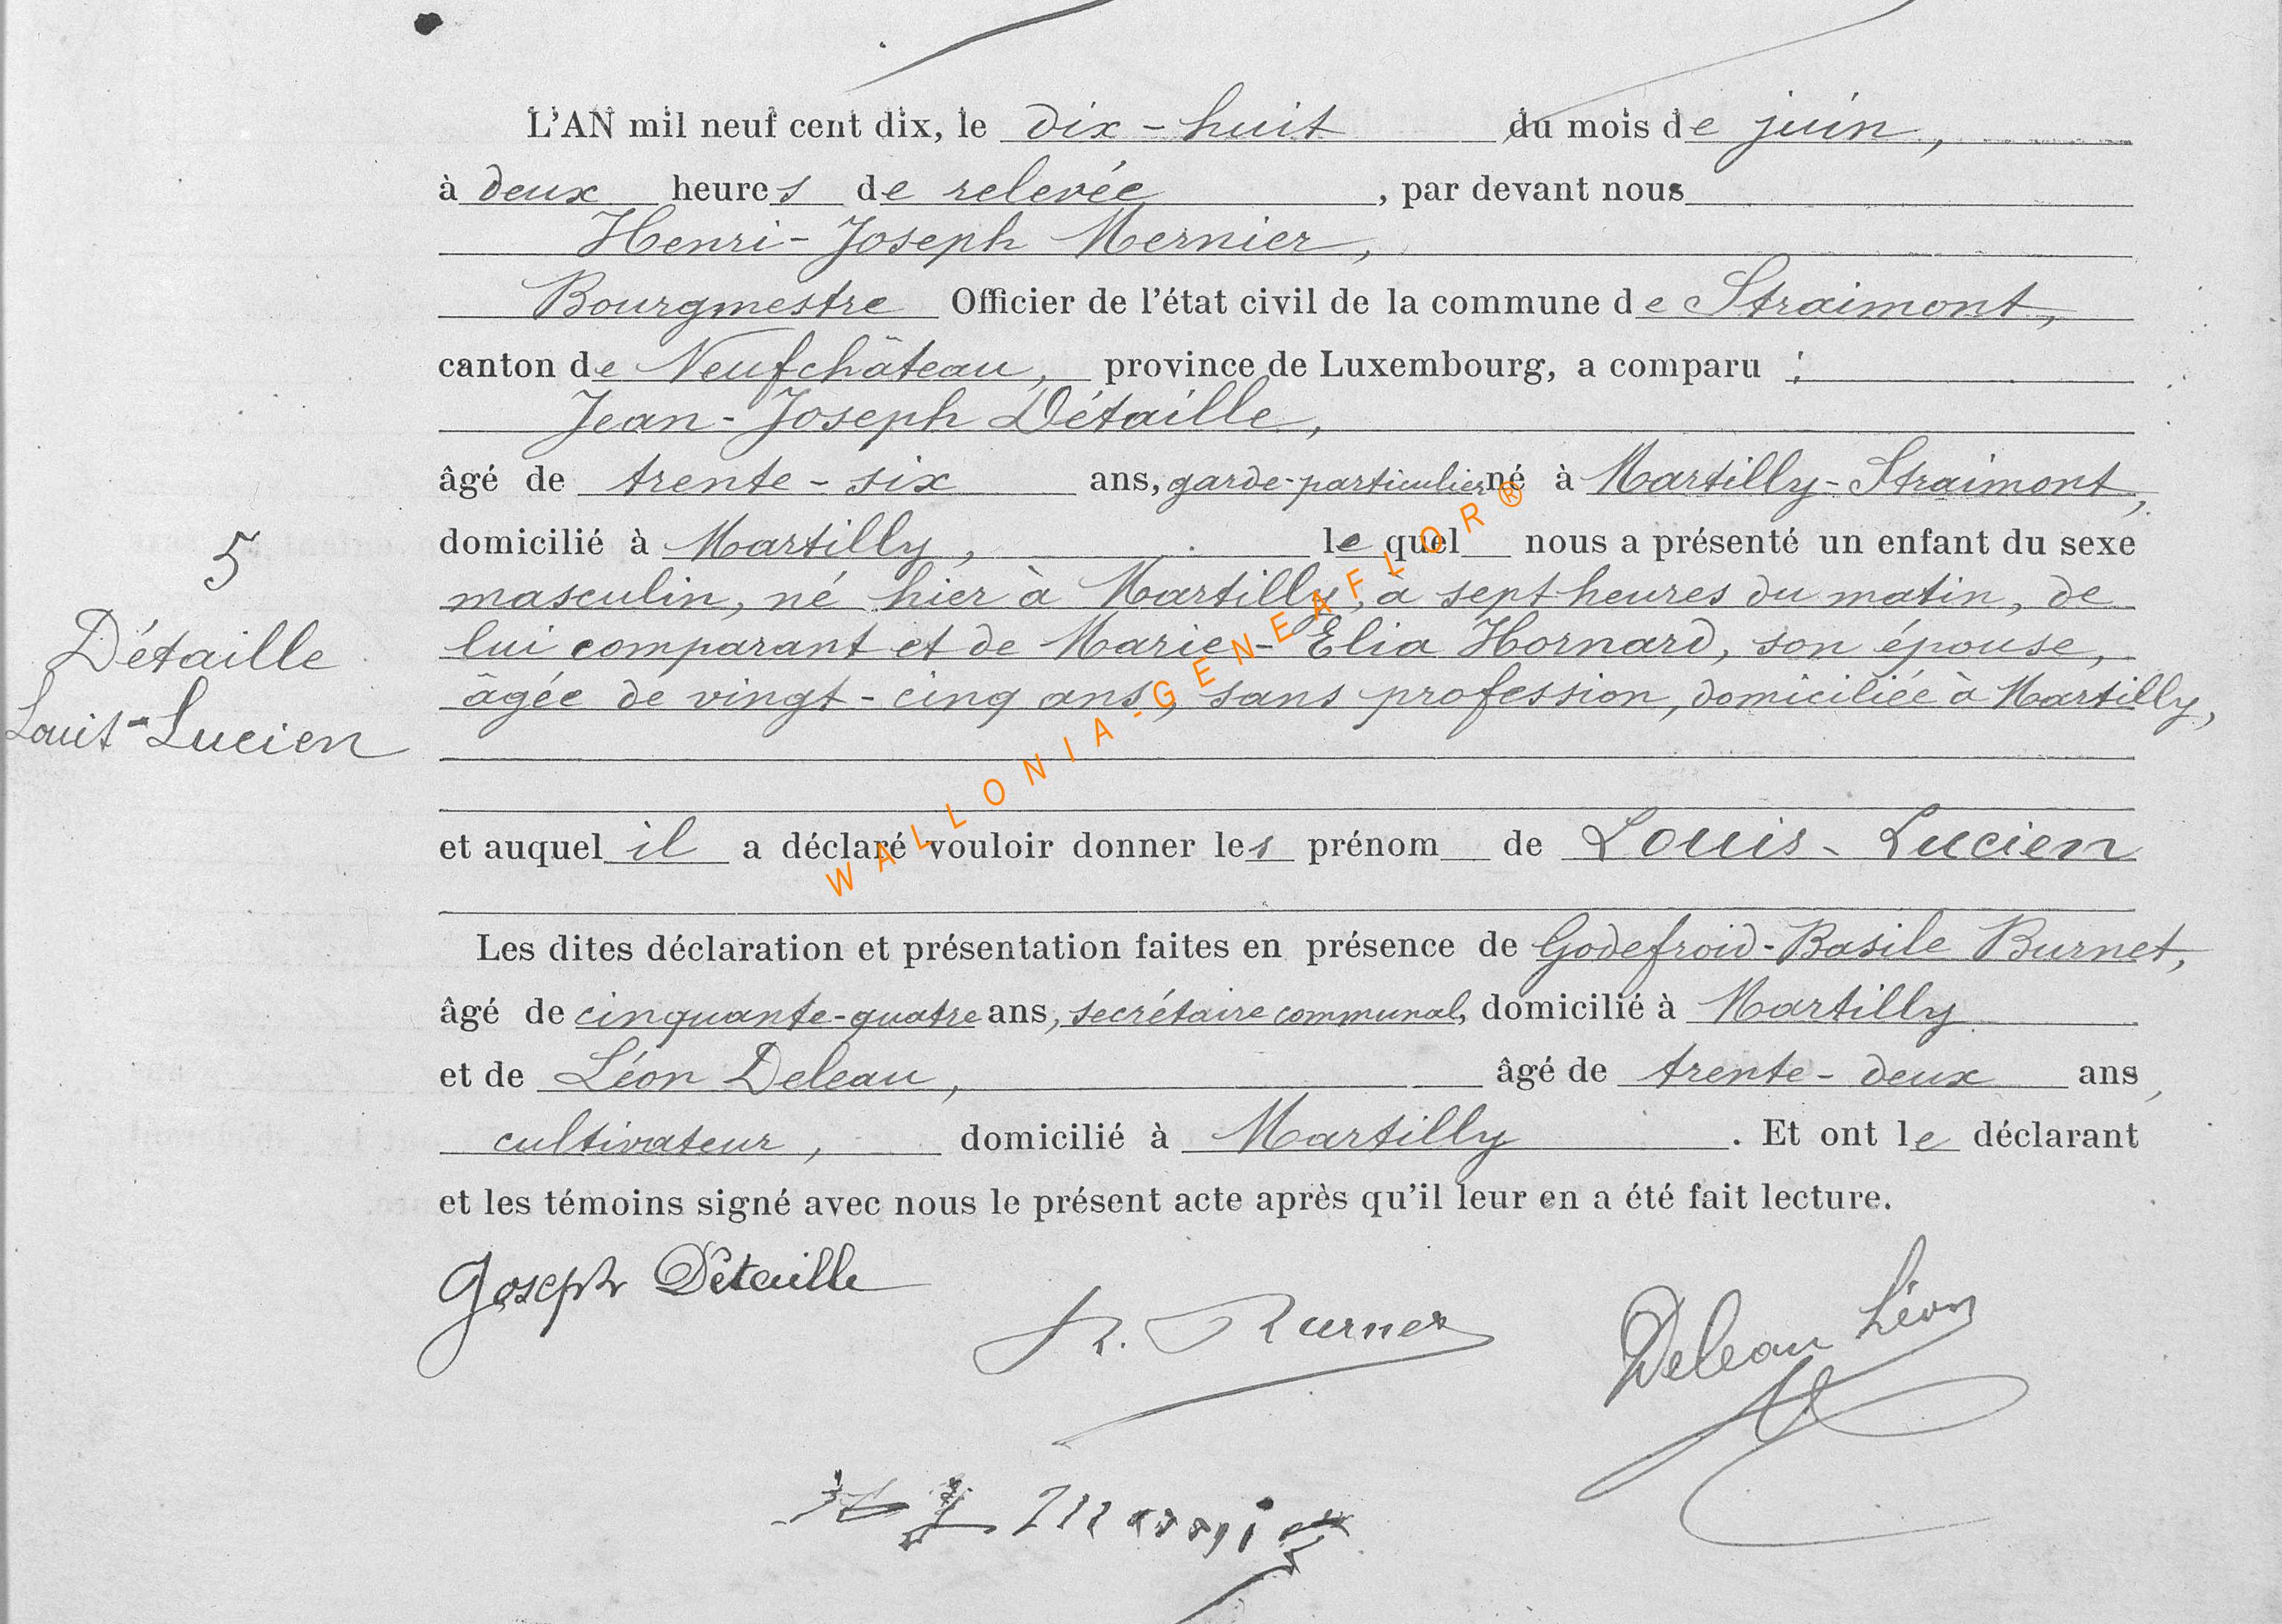 L'AN mil neuf cent dix, le dix-huit du mois de juin,
à deux heures de relevée, par devant nous
Henri-Joseph Mernier,
Bourgmestre Officier de l'état civil de la commune de Straimont,
canton de Neufchâteau, province de Luxembourg, a comparu :
Jean-Joseph Détaille,
âgé de trente-six ans, garde-particulier né à Martilly-Straimont,
domicilié à Martilly, lequel nous a présenté un enfant du sexe
masculin, né hier à Martilly, à sept heures du matin, de
lui comparant et de Marie-Elia Hornard, son épouse,
âgée de vingt-cinq ans, sans profession, domiciliée à Martilly,
5
Détaille
Louis-Lucien
et auquel il a déclaré vouloir donner les prénom de Louis-Lucien
Les dites déclaration et présentation faites en présence de Godefroid-Basile Burnet,
âgé de cinquante-quatre ans, secrétaire communal, domicilié à Martilly
et de Léon Deleau, âgé de trente-deux ans,
cultivateur, domicilié à Martilly. Et ont le déclarant
et les témoins signé avec nous le présent acte après qu'il leur en a été fait lecture.
Joseph Détaille
Deleau Léon
WALLONIA-GENEAFLOR®